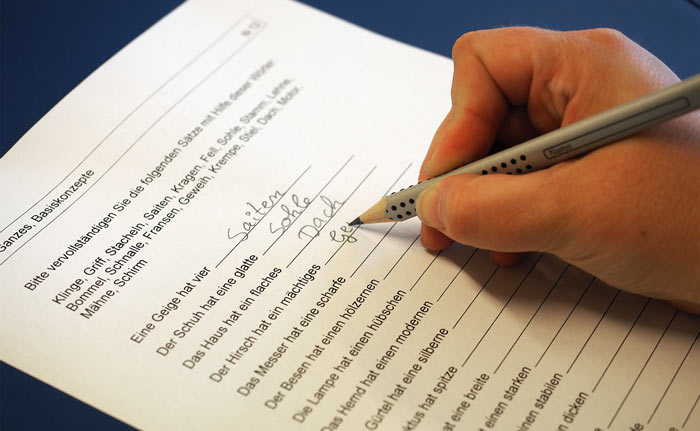 Ganzes, Basiskonzepte
Bitte vervollständigen Sie die folgenden Sätze mit Hilfe dieser Wörter:
Klinge, Griff, Stacheln, Saiten, Kragen, Fell, Sohle, Stamm, Lehne,
Bommel, Schnalle, Fransen, Geweih, Krempe, Stiel, Dach, Motor,
Mähne, Schirm
Eine Geige hat vier Saiten
Der Schuh hat eine glatte Sohle
Das Haus hat ein flaches Dach
Der Hirsch hat ein mächtiges Ge
Das Messer hat eine scharfe
Der Besen hat einen hölzernen
Die Lampe hat einen hübschen
Das Hemd hat einen modernen
Gürtel hat eine silberne
ktus hat spitze
hat eine breite
t einen starken
einen stabilen
n dicken
Name